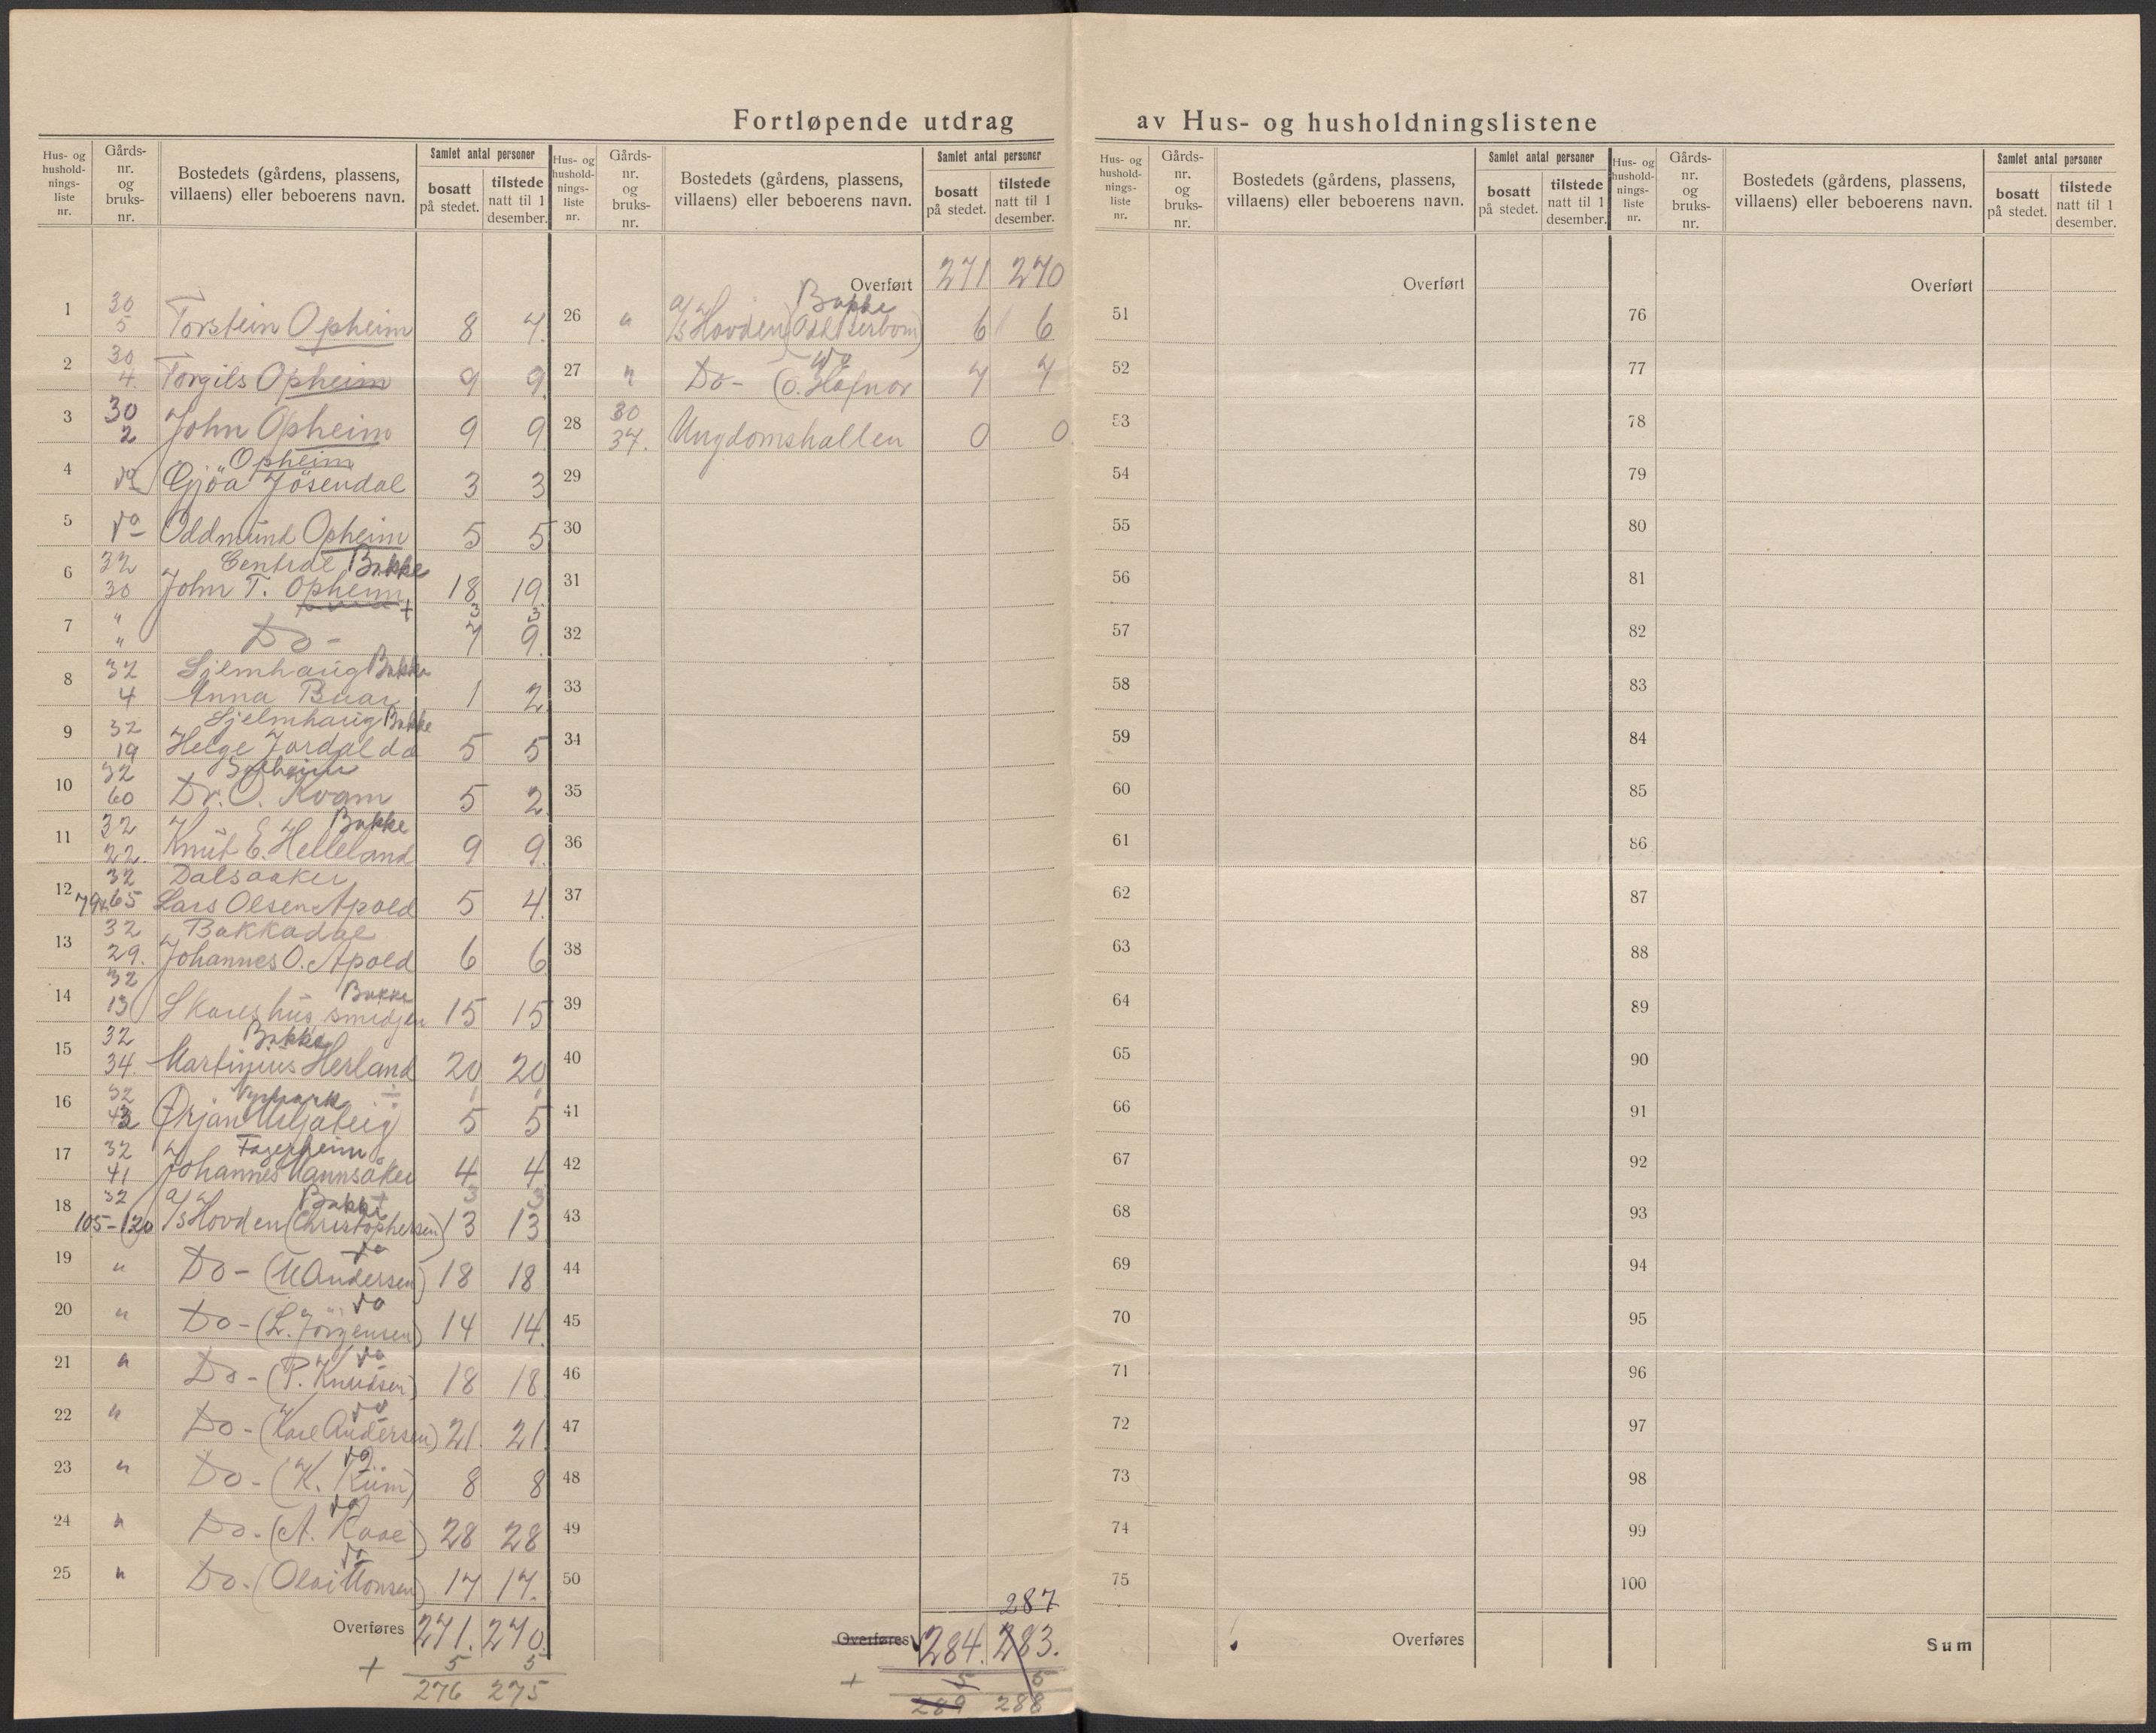 Fortløpende utdrag av Hus- og husholdningslistene
Hus- og hushold-nings-liste nr.
Gårds-nr. og bruks-nr.
Bostedets (gårdens, plassens, villaens) eller beboerens navn.
Samlet antal personer
bosatt på stedet.
tilstede natt til 1 desember.
1 30 5 Torstein Opheim 8 7.
2 30 4. Torgils Opheim 9 9.
3 30 2 John Opheim 9 9.
Opheim
4 do Gjöa Jösendal 3 3
5 do Oddmund Opheim 5 5
Central Bakke
6 32 30 John T. Opheim 18 19.
3 3
7 " " Do - 7 9.
Bakke
8 32 4 Anna Buar 1 2
Bakke
9 32 19 Helge Jordal do 5 5
Solheim
10 32 60 Dr. O. Kvam 5 2
Bakke
11 32 22. Knut E. Helleland 9 9.
Dalsaaker
12 32 79 65 Lars Olsen Apold 5 4.
Bakkadal
13 32 29. Johannes O. Apold 6 6
Bakke
14 32 13 Skares hus smedjen 15 15
Bakke
15 32 34. Martinius Herland 20 20
1 1
16 32 Ørjan 5 5
Fagerheim
17 32 41 Johannes Mannsåker 4 4
3 3
Bakke
18 32 105-120 A/S Hovden (Christophersen) 13 13
do
19 " Do - (M Andersen) 18 18
do
20 " Do - (L. Jörgensen) 14 14.
do
21 " Do - (P. Knudsen) 18 18.
do
22 " Do - (Kare Andersen) 21. 21.
do
23 " Do - (K. Kum) 8 8
do
24 " Do. (A. Kaae) 28 28
do
25 " Do. (Olai Monsen) 17 17.
Overføres 271. 270.
+ 5 5
276 275
Hus- og hushold-nings-liste nr.
Gårds-nr. og bruks-nr.
Bostedets (gårdens, plassens, villaens) eller beboerens navn.
Samlet antal personer
bosatt på stedet.
tilstede natt til 1 desember.
Overført 271 270
Bakke
26 " A/S Hovden 6 6
do
27 " Do - (O. Hafnor 7 7
28 30 37. Ungdomshallen 0 0.
29
30
31
32
33
34
35
36
37
38
39
40
41
42
43
44
45
46
47
48
49
50
287
Overføres 284. 283.
+ 5 5
289 288
Hus- og hushold-nings-liste nr.
Gårds-nr. og bruks-nr.
Bostedets (gårdens, plassens, villaens) eller beboerens navn.
Samlet antal personer
bosatt på stedet.
tilstede natt til 1 desember.
Overført
51
52
53
54
55
56
57
58
59
60
61
62
63
64
65
66
67
68
69
70
71
72
73
74
75
Overføres
Hus- og hushold-nings-liste nr.
Gårds-nr. og bruks-nr.
Bostedets (gårdens, plassens, villaens) eller beboerens navn.
Samlet antal personer
bosatt på stedet.
tilstede natt til 1 desember.
Overført
76
77
78
79
80
81
82
83
84
85
86
87
88
89
90
91
92
93
94
95
96
97
98
99
100
Sum